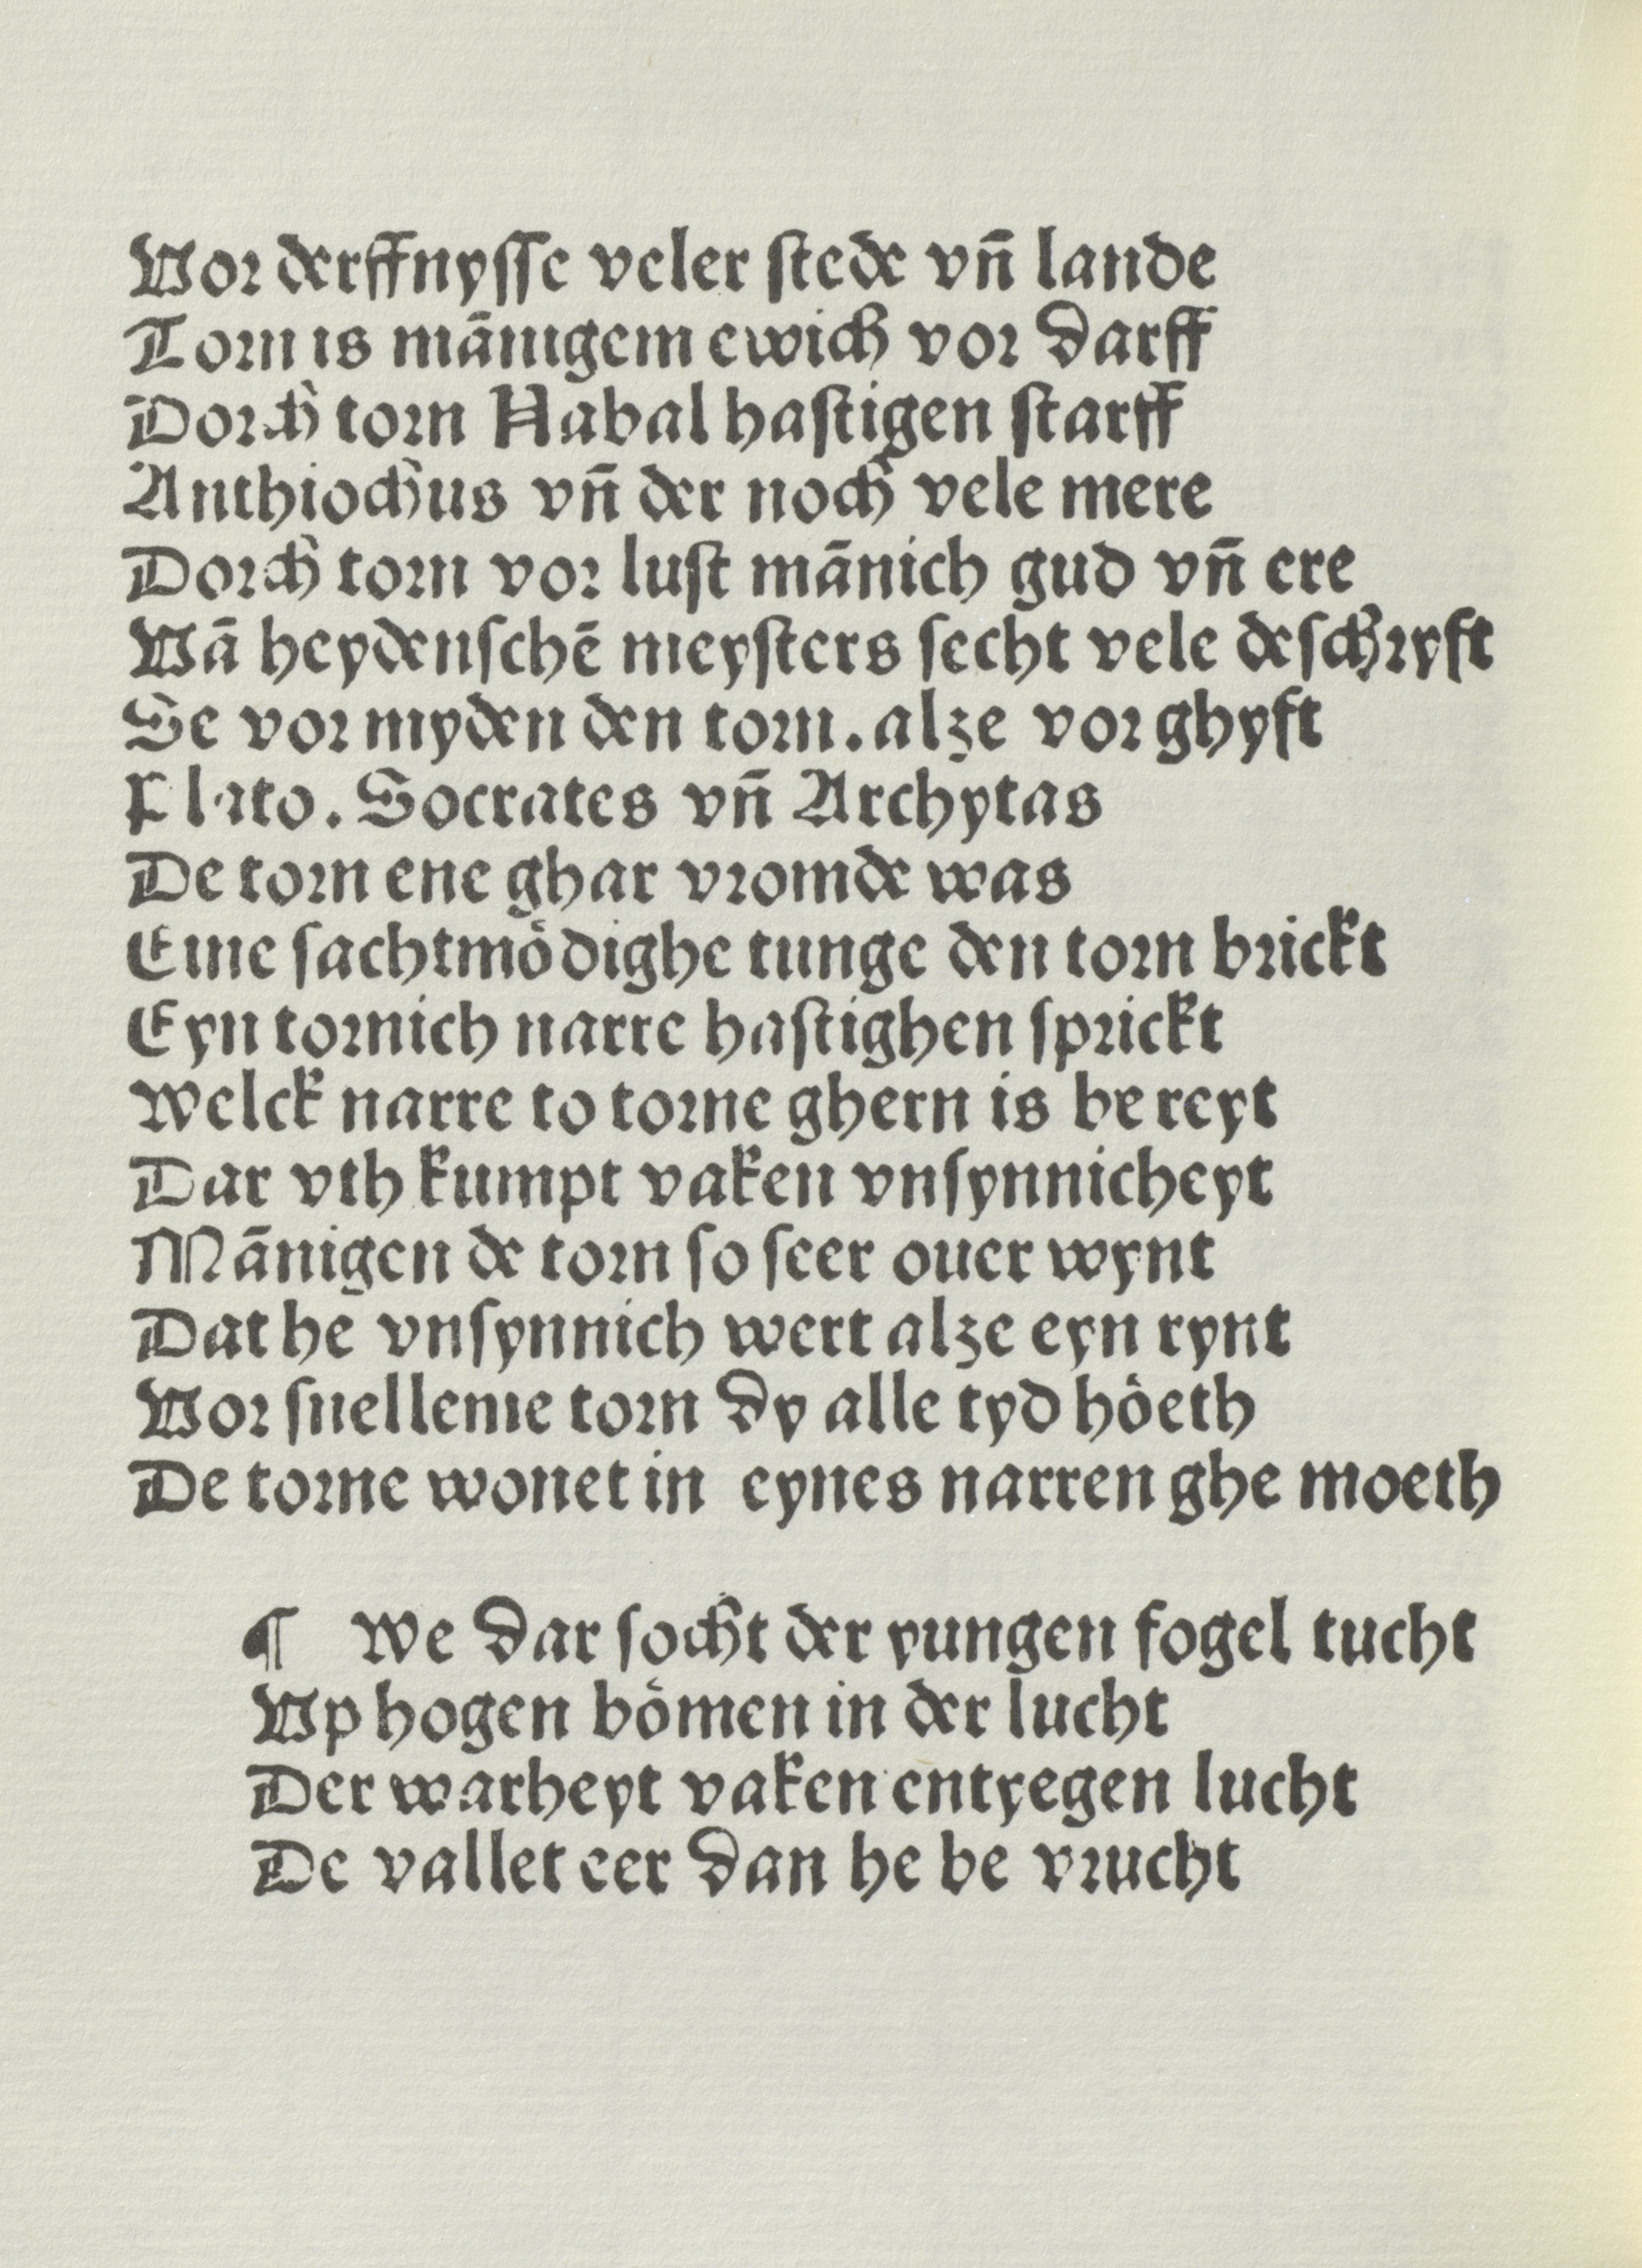 Vor derffnysse veler stede vn̄ lande
Torn is mānigem ewich vor darff
Dorch torn Nabal hastigen starff
Anthiochus vn̄ der noch vele mere
Dorch torn vor lust mānich gud vn̄ ere
Vā heydenschē meysters secht vele deschryft
Se vor myden den torn. alze vor ghyft
Plato. Socrates vn̄ Archytas
De torn ene ghar vromde was
Eine sachtmödighe tunge den torn brickt
Eyn tornich narre hastighen sprickt
Welck narre to torne ghern is be reyt
Dar vth kumpt vaken vnsynnicheyt
Mānigen de torn so seer ouer wynt
Dat he vnsynnich wert alze eyn rynt
Vor snelleme torn dy alle tyd höeth
De torne wonet in eynes narren ghe moeth
¶ We dar socht der yungen fogel tucht
Vp hogen bömen in der lucht
Der warheyt vaken entyegen lucht
De vallet eer dan he be vrucht